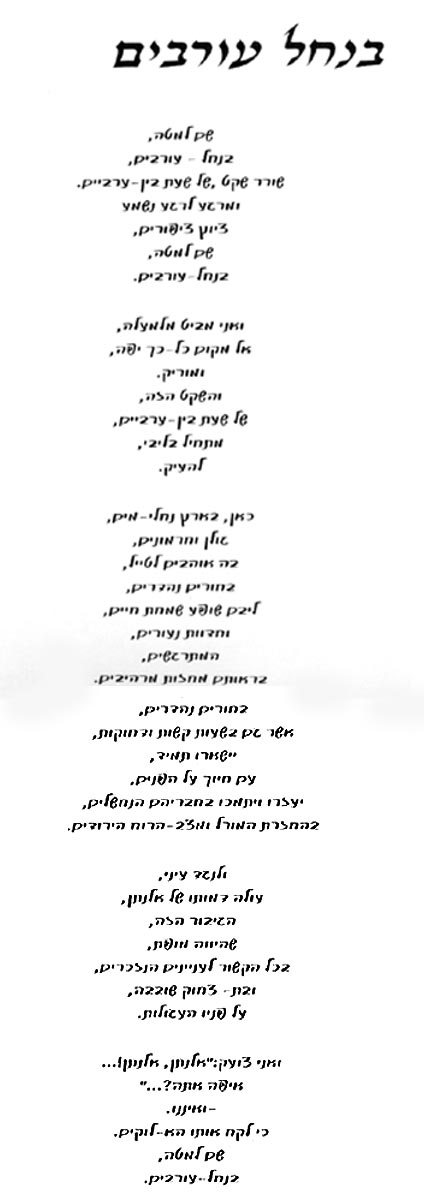 בנחל עורבים
שם למטה,
בנחל - עורבים,
שורר שקט ,של שעת בין-ערביים.
ומרגע לרגע נשמע
ציוץ ציפורים,
שם למטה,
בנחל-עורבים.
ואני מביט מלמעלה,
אל מקום כל-כך יפה,
ומוריק.
והשקט הזה,
של שעת בין-ערביים,
מתחיל בליבי,
להציק.
כאן, בארץ נחלי-מים,
גולן וחרמונים,
בה אוהבים לטייל,
בחורים נהדרים,
ליבם שופע שמחת חיים,
וחדוות נעורים,
המתרגשים,
בראותם מחזות מרהיבים.
בחורים נהדרים,
אשר גם בשעות קשות ודחוקות,
יישארו תמיד,
עם חיוך על הפנים,
יעזרו ויתמכו בחבריהם הנחשלים,
בהחזרת המורל ומצב-הרוח הירודים.
ולנגד עיני,
עולה דמותו של אלנתן,
הגיבור הזה,
שהיווה מופת,
בכל הקשור לעניינים הנזכרים,
ובת- צחוק שובבה,
על פניו העגולות.
ואני צועק:"אלנתן, אלנתן!...
איפה אתה?..."
-ואיננו.
כי לקח אותו הא-לוקים.
שם למטה,
בנחל-עורבים.